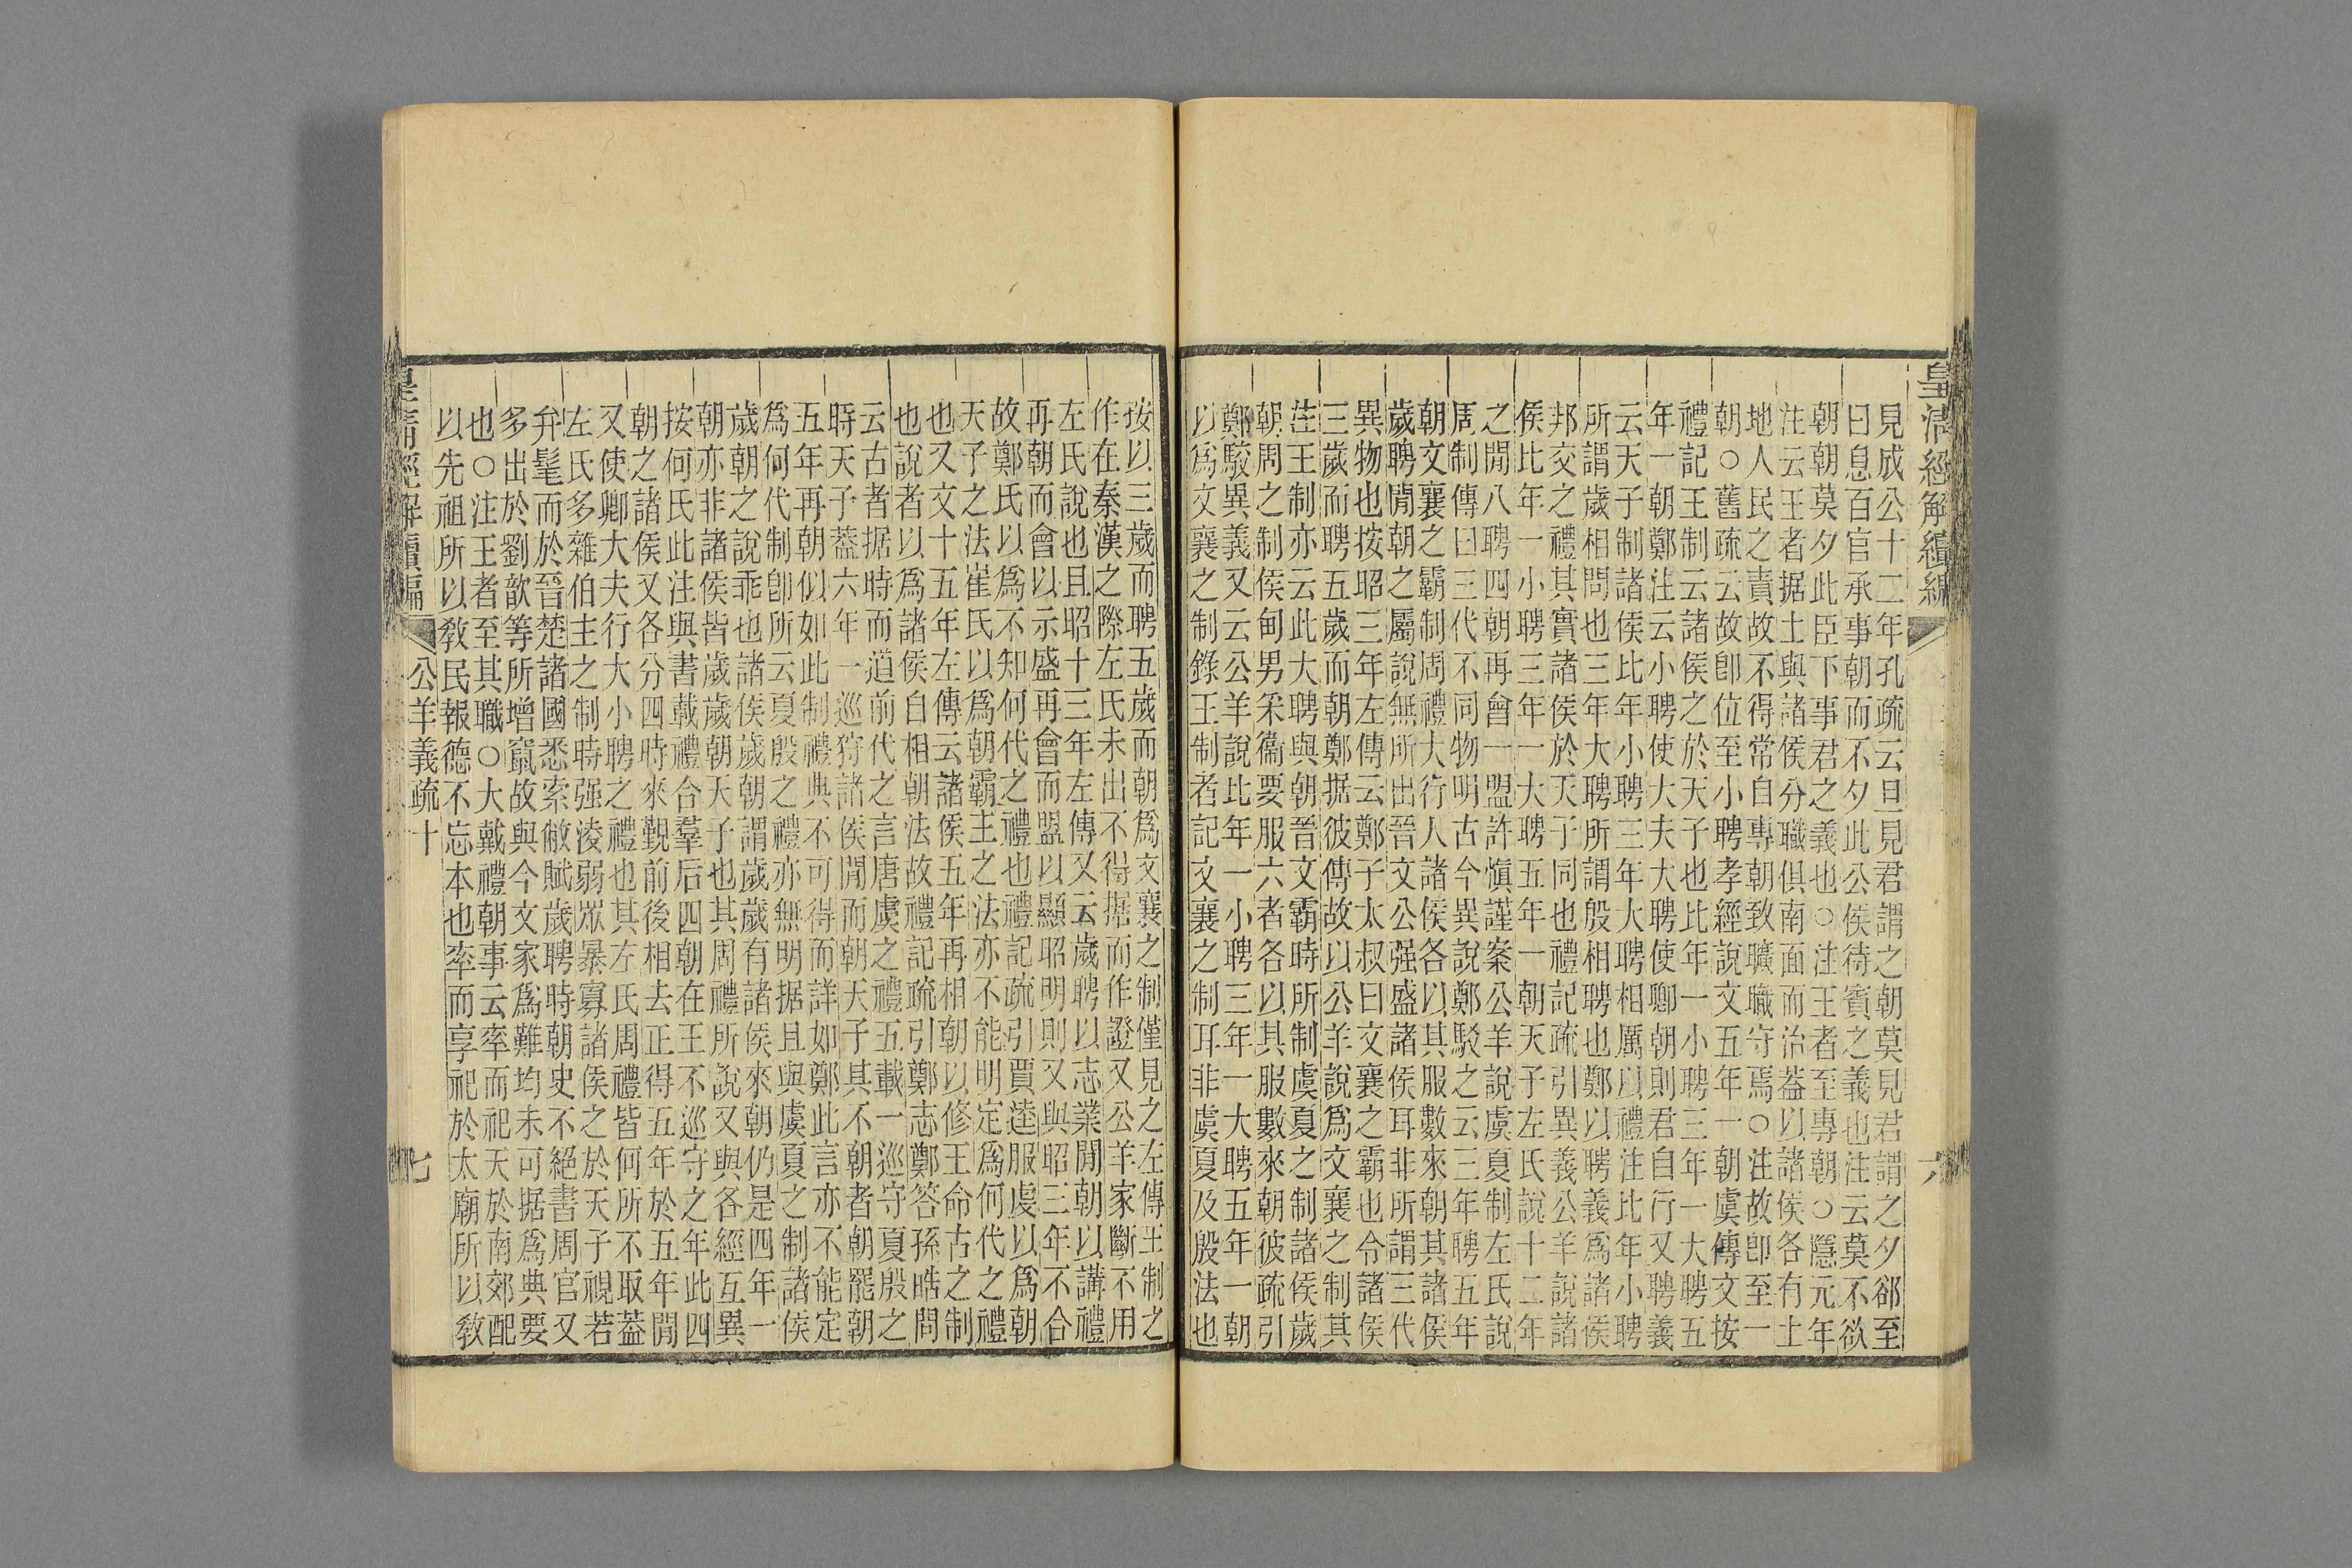 皇清經解續編
見成公十二年孔疏云旦見君謂之朝莫見君謂之夕郤至
曰息百官承事朝而不夕此公侯待賓之義也注云莫不欲
朝朝莫夕此臣下事君之義也○注王者至專朝○隱元年
注云王者据土與諸侯分職俱南面而治葢以諸侯各有土
地人民之責故不得常自專朝致曠職守焉○注故卽至一
朝○舊疏云故卽位至小聘孝經說文五年一朝虞傳文按
禮記王制云諸侯之於天子也比年一小聘三年一大聘五
年一朝鄭注云小聘使大夫大聘使卿朝則君自行又聘義
云天子制諸侯比年小聘三年大聘相厲以禮注比年小聘
所謂歲相問也三年大聘所謂殷相聘也鄭以聘義爲諸侯
邦交之禮其實諸侯於天子同也禮記疏引異義公羊說諸
侯比年一小聘三年一大聘五年一朝天子左氏說十二年
之閒八聘四朝再會一盟許愼謹案公羊說虞夏制左氏說
周制傳曰三代不同物明古今異說鄭駁之云三年聘五年
朝文襄之霸制周禮大行人諸侯各以其服數來朝其諸侯
歲聘閒朝之屬說無所出晉文公强盛諸侯耳非所謂三代
異物也按昭三年左傳云鄭子太叔曰文襄之霸也令諸侯
三歲而聘五歲而朝鄭据彼傳故以公羊說爲文襄之制其
注王制亦云此大聘與朝晉文霸時所制虞夏之制諸侯歲
朝周之制侯甸男采衞要服六者各以其服數來朝彼疏引
鄭駁異義又云公羊說比年一小聘三年一大聘五年一朝
以爲文襄之制錄王制者記文襄之制耳非虞夏及殷法也
按以三歲而聘五歲而朝爲文襄之制僅見之左傳王制之
作在秦漢之際左氏未出不得据而作證又公羊家斷不用
左氏說也且昭十三年左傳又云歲聘以志業閒朝以講禮
再朝而會以示盛再會而盟以顯昭明則又與昭三年不合
故鄭氏以爲不知何代之禮也禮記疏引賈逵服虔以爲朝
天子之法崔氏以爲朝霸主之法亦不能明定爲何代之禮
也又文十五年左傳云諸侯五年再相朝以修王命古之制
也說者以爲諸侯自相朝法故禮記疏引鄭志鄭答孫晧問
云古者据時而道前代之言唐虞之禮五載一巡守夏殷之
時天子葢六年一巡狩諸侯閒而朝天子其不朝者朝罷朝
五年再朝似如此制禮典不可得而詳如鄭此言亦不能定
爲何代制卽所云夏殷之禮亦無明据且與虞夏之制諸侯
歲朝之說乖也諸侯歲朝謂歲歲有諸侯來朝仍是四年一
朝亦非諸侯皆歲歲朝天子也其周禮所說又與各經互異
按何氏此注與書載禮合羣后四朝在王不巡守之年此四
朝之諸侯又各分四時來覲前後相去正得五年於五年閒
又使卿大夫行大小聘之禮也其左氏周禮皆何所不取葢
左氏多雜伯主之制時强淩弱眾暴寡諸侯之於天子視若
弁髦而於晉楚諸國悉索敝賦歲聘時朝史不絕書周官又
多出於劉歆等所增竄故與今文家爲難均未可据爲典要
也○注王者至其職○大戴禮朝事云率而祀天於南郊配
以先祖所以敎民報德不忘本也率而享祀於太廟所以敎
皇淸經解續編
公羊義疏十
七